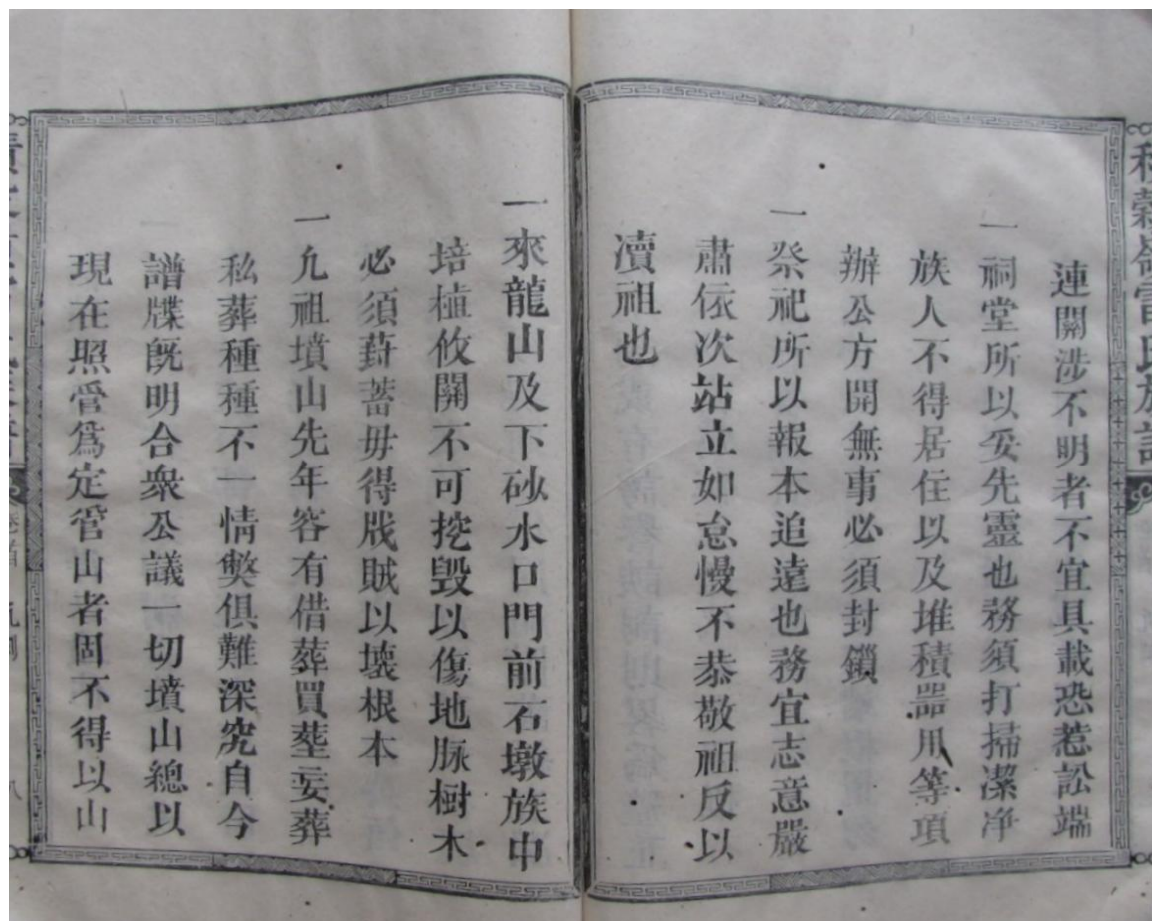 連關涉不明者不宜具載恐惹訟端
一祠堂所以妥先靈也務須打掃潔净
族人不得居住以及堆積噐用等項
辦公方開無事必須封鎖
一祭祀所以報本追遠也務宜志意嚴
肅依次站立如怠慢不恭敬祖反以
凟祖也
一來龍山及下砂水口門前石墩族中
培植攸關不可挖毀以傷地脉樹木
必須蓄毋得戕賊以壞根本
一九祖墳山先年容有借葬買塟妄葬
私葬種種不一情獘俱難深究自今
譜牒旣明合衆公議一切墳山總以
現在照管爲定管山者固不得以山